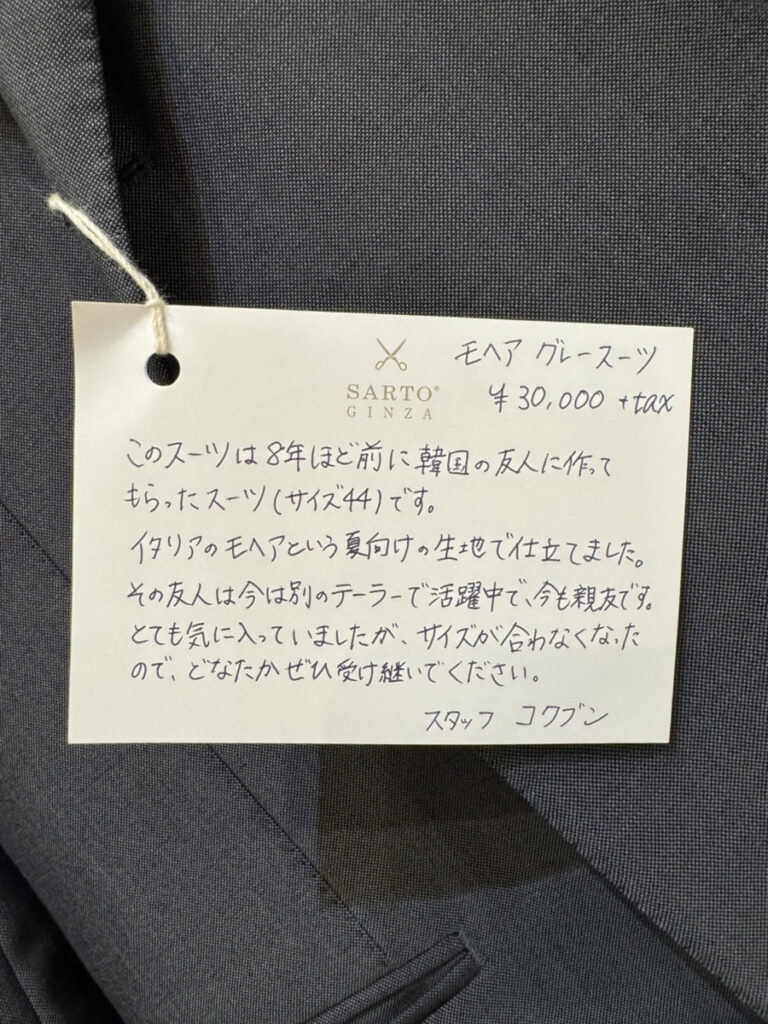 モヘア グレースーツ
¥30,000 +tax
SARTO®
GINZA
このスーツは8年ほど前に韓国の友人に作って
もらったスーツ(サイズ44)です。
イタリアのモヘアという夏向けの生地で仕立てました。
その友人は今は別のテーラーで活躍中で、今も親友です。
とても気に入っていましたが、サイズが合わなくなった
ので、どなたかぜひ受け継いでください。
スタッフ コクブン